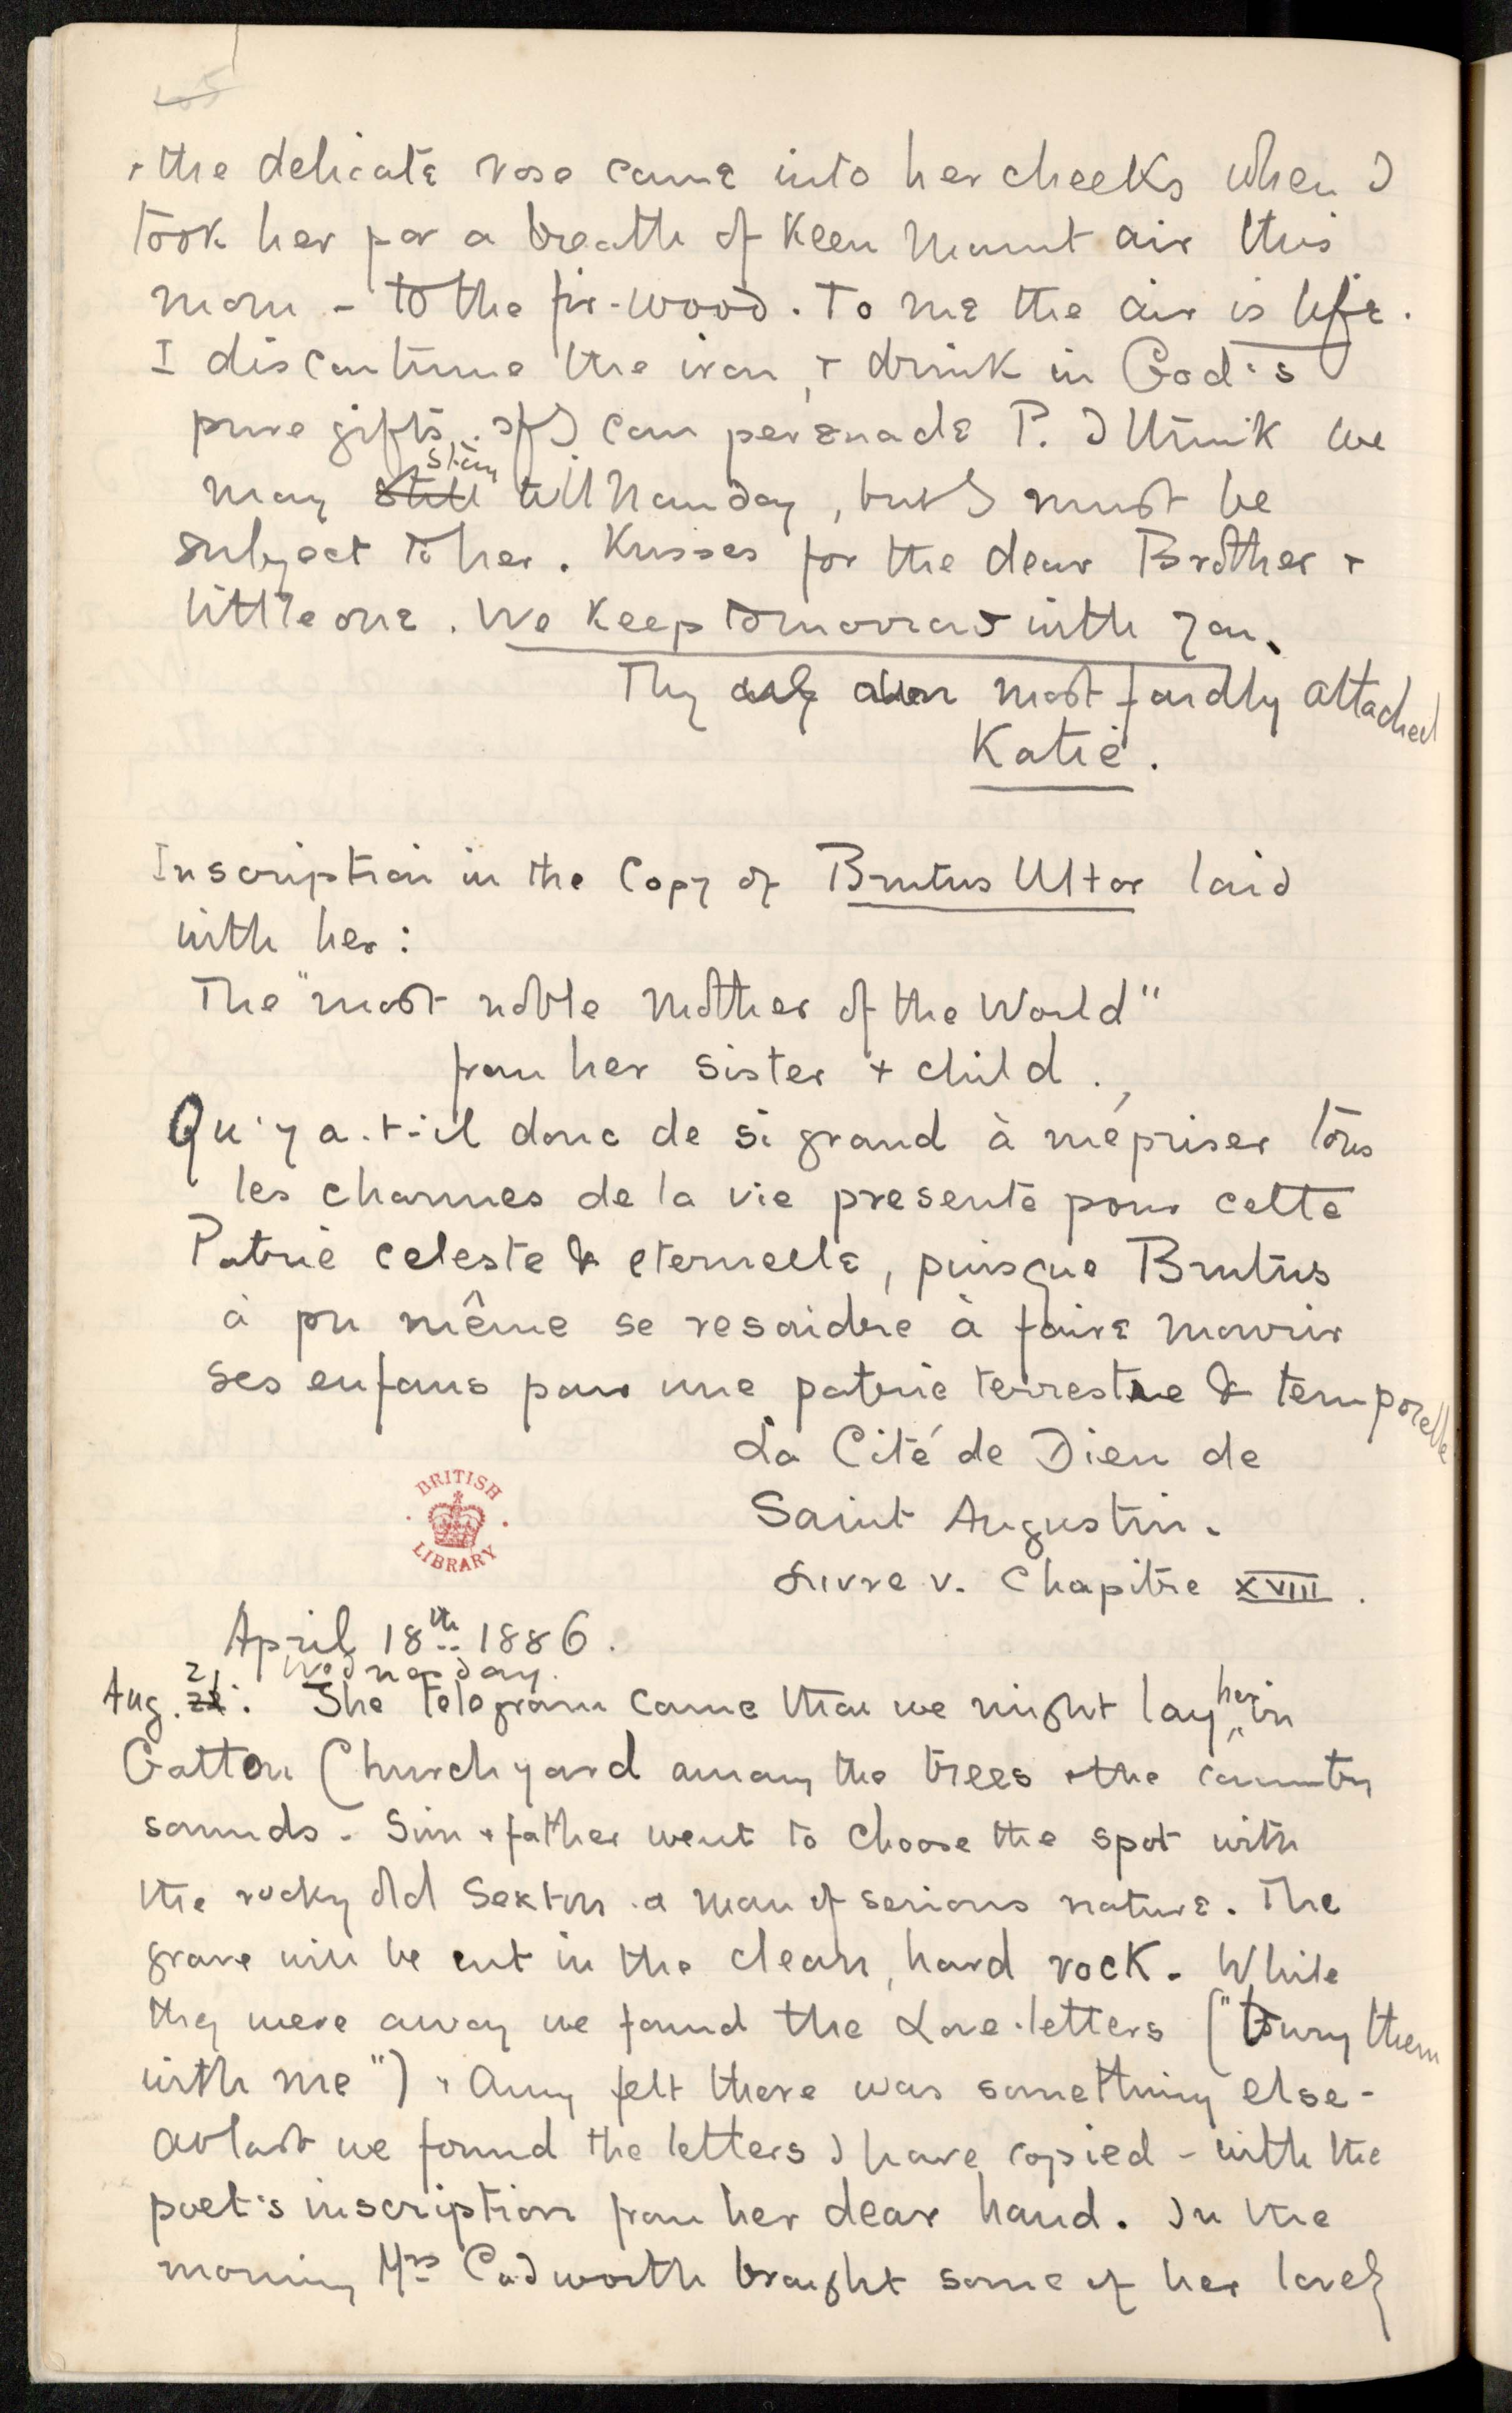 + the delicate rose came into her cheeks when I
took her for a breath of keen Mount air this
morn - to the fir-wood. To me the air is life.
I discontinue the iron, + drink in God's
pure gifts. If I can persuade P. I think we
may still stay till Monday, but I must be
subject to her. Kisses for the dear Brother +
little one. We keep tomorrow with you.
Thy own most fondly attached
Katie.
Inscription in the Copy of Brutus Ultor laid
with her:
The "most noble Mother of the World"
from her sister + child.
Qu'y a-t-il donc de si grand à mépriser tous
les charmes de la vie presente pour cette
Patrie celeste & eternelle, puisque Brutus
à pu même se resoidre à faire mourir
ses enfans pour une patrie terrestre & temporelle
La Cité de Dieu de
Saint Augustin.
Livre v. Chapitre XVIII.
BRITISH LIBRARY
April 18th 1886.
Wednesday.
Aug. 21. The telegram came that we might lay her in
Gatton Churchyard among the trees + the country
sounds. Sim + father went to choose the spot with
the rocky old Sexton a man of serious nature. The
grave will be cut in the clean, hard rock. While
they were away we found the Love-letters ("bury them
with me") + Amy felt there was something else -
At last we found the letters I have copied - with the
poet's inscription from her dear hand. In the
morning Mrs Cadworth brought some of her lovely